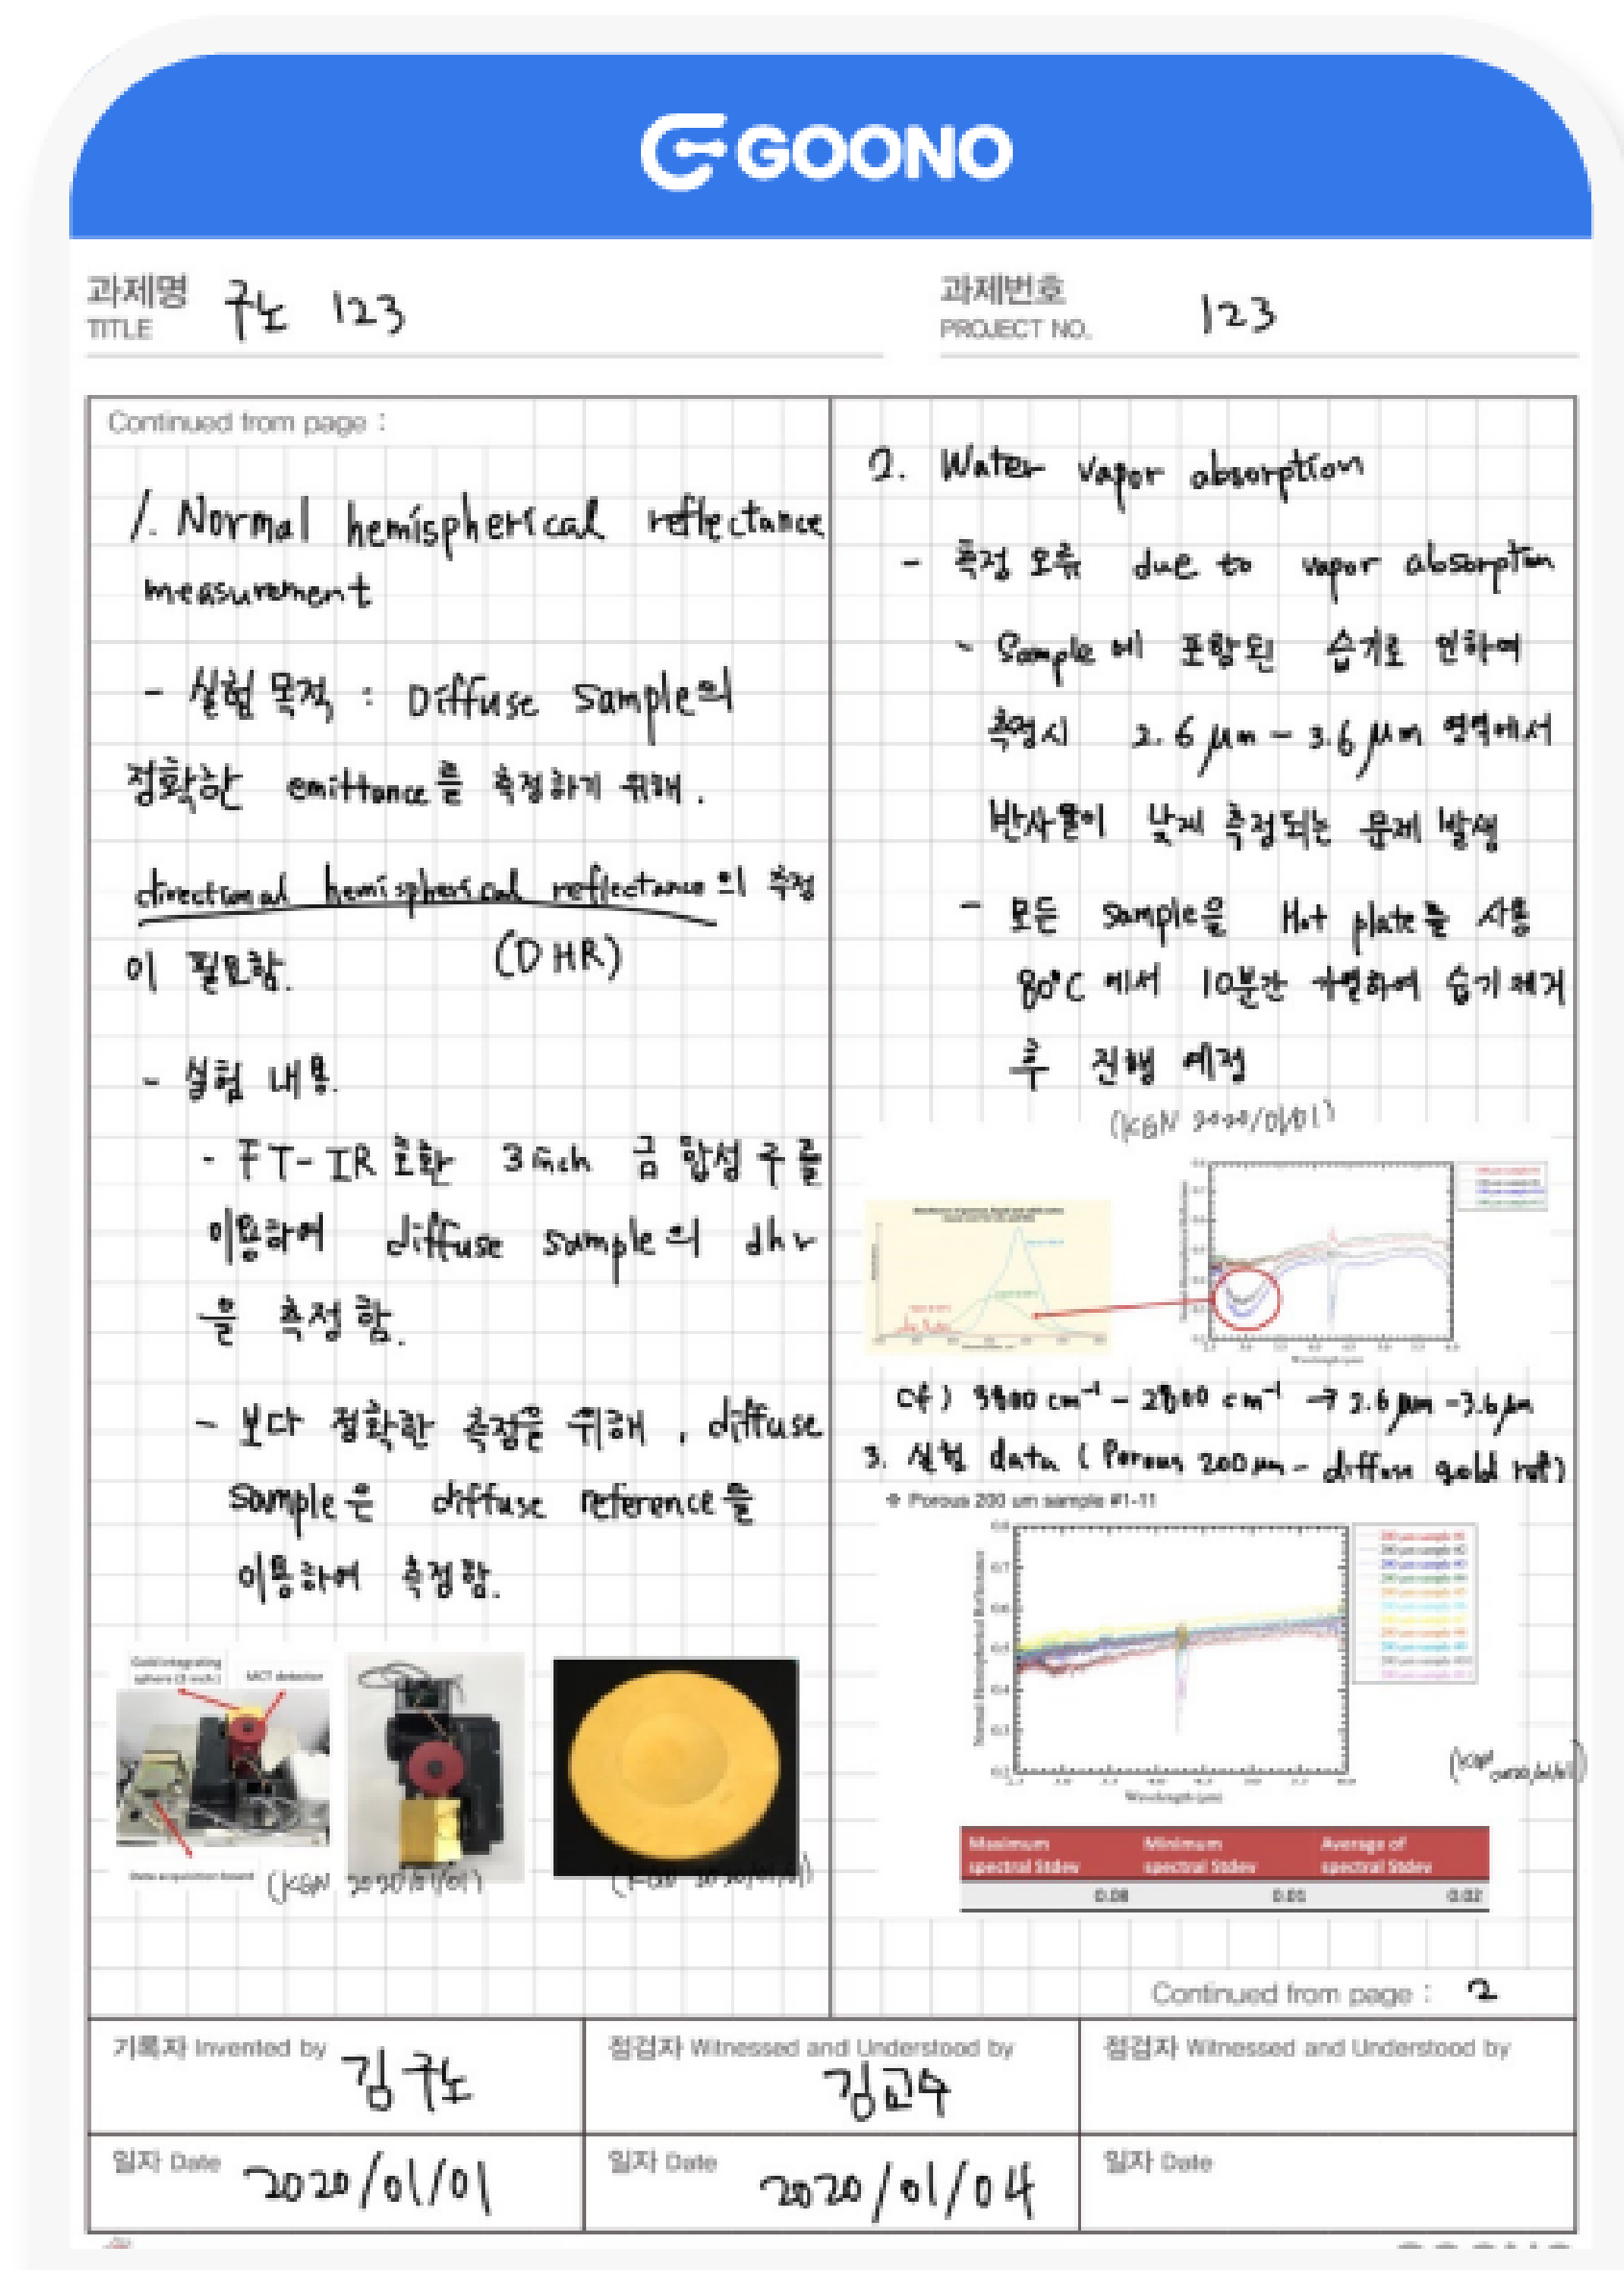 GOONO
과제명 구노 123
TITLE
과제번호 123
PROJECT NO.
Continued from page :
1. Normal hemispherical reflectance
measurement
- 실험 목적 : Diffuse sample의
정확한 emittance를 측정하기 위해.
directional hemispherical reflectance의 측정
이 필요함. (DHR)
- 실험 내용.
- FT-IR 호환 3 inch 금 합성 구를
이용하여 diffuse sample의 dhr
을 측정함.
- 보다 정확한 측정을 위해, diffuse
sample은 diffuse reference를
이용하여 측정함.
Gold integrating
sphere (3 inch)
MCT detector
Data acquisition board
(KGN 2020/01/01)
(KGN 2020/01/01)
2. Water vapor absorption
- 측정 오류 due to vapor absorption
- Sample에 포함된 습기로 인하여
측정시 2.6 μm - 3.6 μm 영역에서
반사율이 낮게 측정되는 문제 발생
- 모든 sample을 Hot plate를 사용
80°C 에서 10분간 가열하여 습기 제거
후 진행 예정
(KGN 2020/01/01)
cf) 3800 cm⁻¹ - 2800 cm⁻¹ → 2.6 μm - 3.6 μm
3. 실험 data (Porous 200 μm - diffuse gold ref)
❖ Porous 200 um sample #1-11
Normal Hemispherical Reflectance
Wavelength (μm)
(KGN 2020/01/01)
Maximum spectral Stdev Minimum spectral Stdev Average of spectral Stdev
0.08 0.01 0.02
Continued from page : 2
기록자 Invented by 김구노
점검자 Witnessed and Understood by 김교수
점검자 Witnessed and Understood by
일자 Date 2020/01/01
일자 Date 2020/01/04
일자 Date